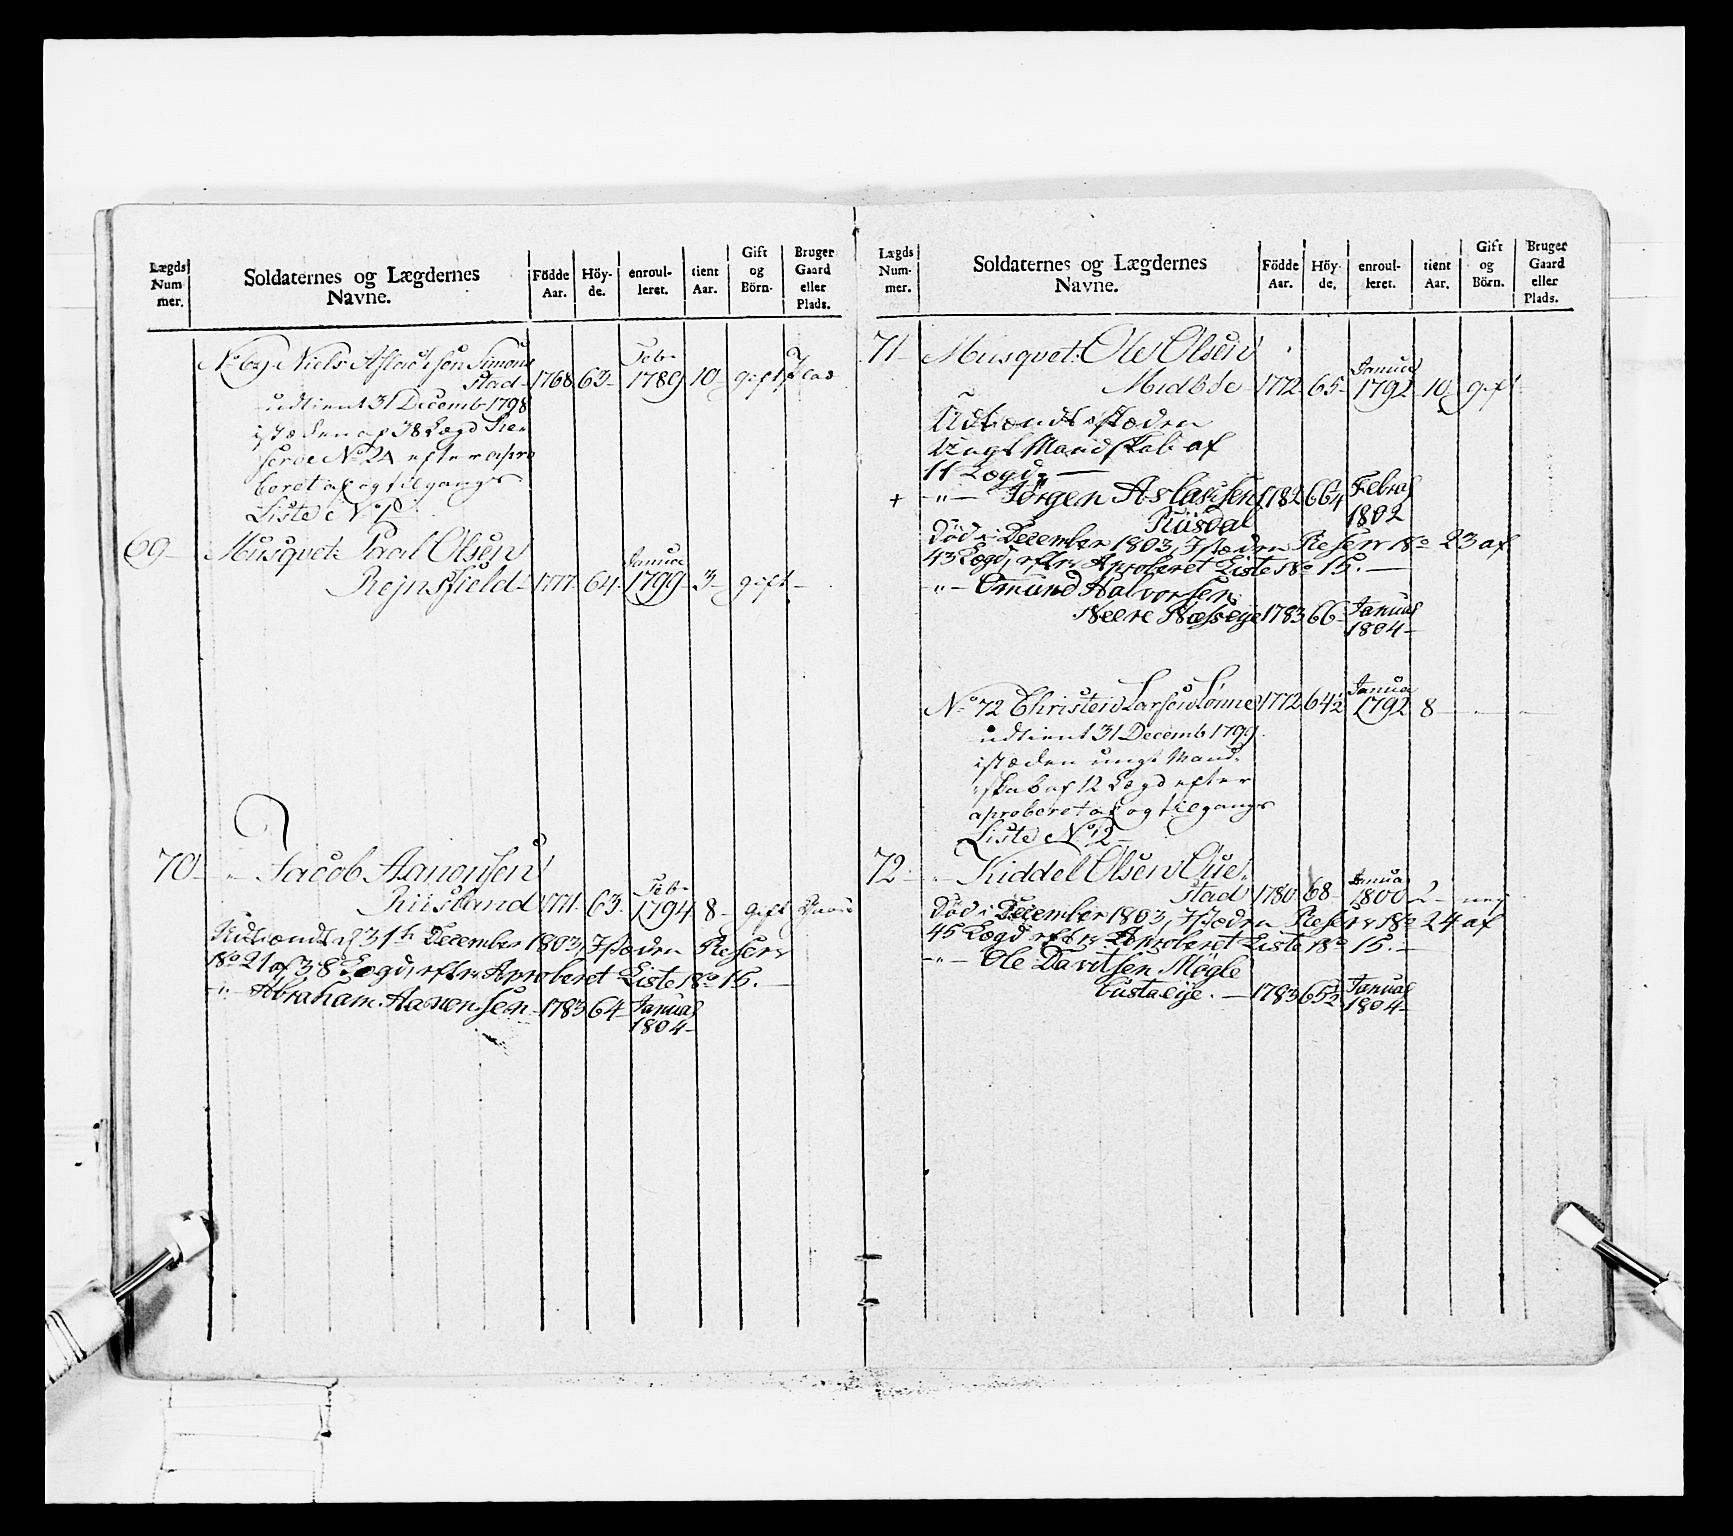 Lægds Num- mer.
Soldaternes og Lægdernes Navne.
Födde Aar.
Höy- de.
enroul- leret.
tient Aar.
Gift og Börn.
Bruger Gaard eller Plads.
No 69 Niels Aslachsen Simons
stad 1768 63 Feb 1789 10 gift plas
udtient 31 Decemb 1798
istæden af 38 Lægd Re-
serve No 24 efter apro
beret af og tilgangs
Liste No
69 Musquet: Paal Olsen
Rejnsfield 1777 64 Janua 1799 3 gift
70 " Jacob Aanonsen
Riisland 1771 63 Feb 1794 8 gift
Udtiændt d 31th December 1803, Istæden Reserv
No 21 af 38 Lægd, efter Aproberet Liste No 15.
" Abraham Aanensen 1783 64 Januar 1804
Lægds Num- mer.
Soldaternes og Lægdernes Navne.
Födde Aar.
Höy- de.
enroul- leret.
tient Aar.
Gift og Börn.
Bruger Gaard eller Plads.
71 Musquet: Ole Olsen
Midböe 1772 65 Januar 1792 10 gift
Udtiændt istæden
Ungt Mandskab af
11 Lægd
+ " Jörgen Aslaksen 1782 66¼ Febru 1802
Riisdal
Död i December 1803, Istæden Reserv No 23 af
43 Lægd, efter Aproberet Liste No 15.
" Omund Halvorsen
Neere Næsseje 1783 66 Januar 1804
No 72 Christen Larsen Lønne 1772 64½ Janua 1792 8
udtient 31 Decemb 1799
istæden ungt Mand-
skab af 12 Lægd efter
aproberet af og tilgangs
Liste No 12
72 " Kiddel Olsen Oue-
stad 1780 68 Janua 1800 2 nej
Död i December 1803, Istæden Reserv No 24 af
45 Lægd efter Aproberet Liste No 15.
" Ole Davitsen Mögle
bustaeje. 1783 65½ Januar 1804